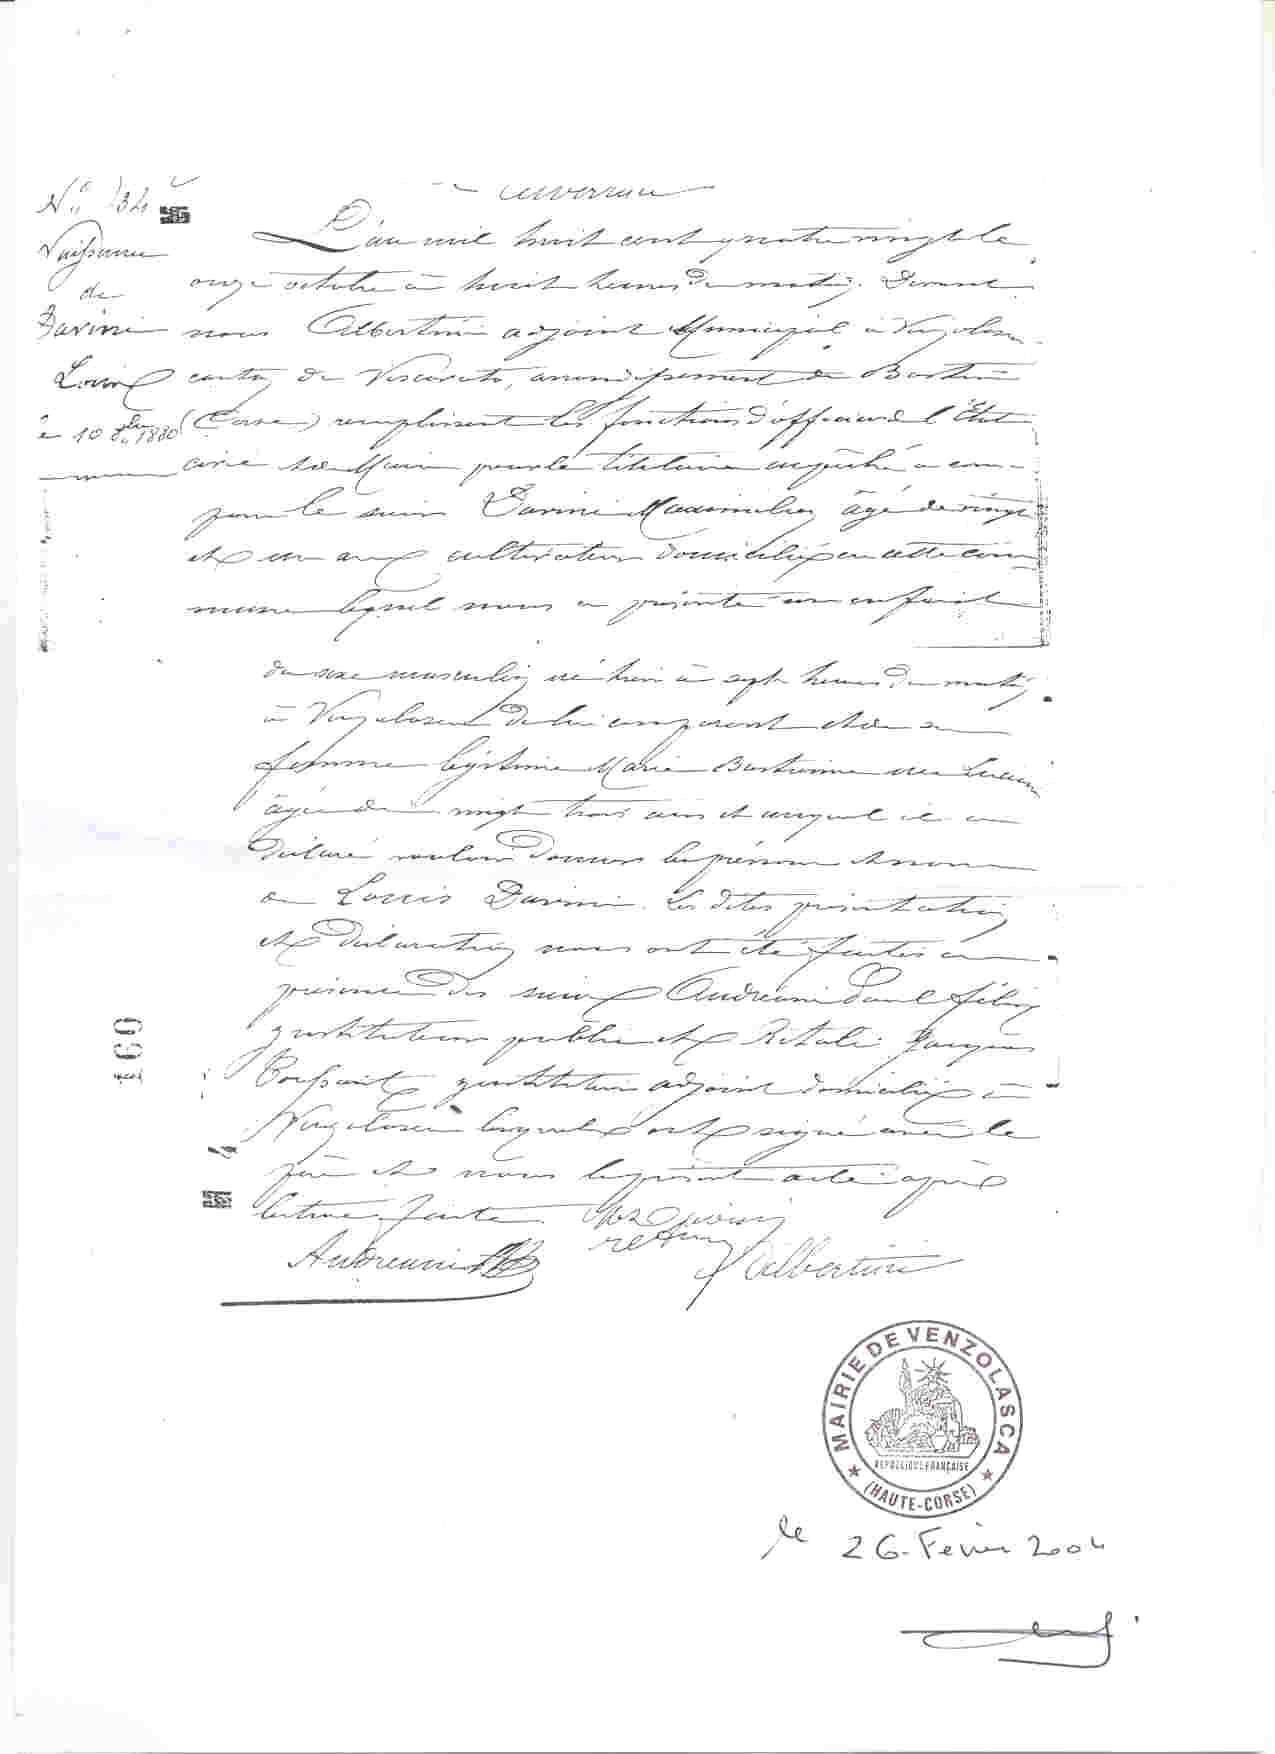 Naissance
de
Darini
Louis
le 10 8bre 1880
L'an mil huit cent quatre vingt le
onze octobre à huit heures du matin. Devant
nous Albertini adjoint Municipal à Venzolasca
canton de Vescovato, arrondissement de Bastia
(Corse) remplissant les fonctions d'officier de l'État
civil le Maire pour le titulaire empêché a com-
paru le sieur Darini Maximilien âgé de vingt
et un ans cultivateur domicilié en cette com
mune lequel nous a présenté un enfant
du sexe masculin né hier à sept heures du matin
à Venzolasca de lui comparant et de sa
femme légitime Marie Bastienne née
âgée de vingt trois ans et auquel il a
déclaré vouloir donner les prénom et nom
de Louis Darini. Les dites présentation
et déclaration nous ont été faites en
présence des sieurs Andreani Paul Félix
instituteur public et Vitali Jacques
Toussaint instituteur adjoint domiciliés à
Venzolasca lesquels ont signé avec le
père et nous le présent acte après
lecture faite.
Andreani Albertini
160
4
MAIRIE DE VENZOLASCA
REPUBLIQUE FRANÇAISE
(HAUTE-CORSE)
le 26. Fevrier 2004